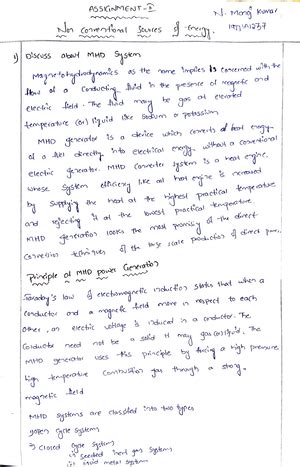 ASSIGNMENT - I
N. Manoj Kumar
Non Conventional Sources of Energy.
1) Discuss about MHD System
Magnetohydrodynamics as the name implies is concerned with the
flow of a conducting fluid in the presence of magnetic and
electric field. The fluid may be gas at elevated
temperature (or) liquid like sodium or potassium
MHD generator is a device which converts heat energy
of a fuel directly into electrical energy without a conventional
electric generator. MHD converter system is a heat engine,
whose system efficiency like all heat engine is increased
by supplying the heat at the highest practical temperature
and rejecting it at the lowest practical temperature.
MHD generation looks the most promising of the direct
conversion techniques of the large scale production of direct power.
Principle of MHD Power Generation
Faraday's law of electromagnetic induction states that when a
conductor and a magnetic field move in respect to each
other, an electric voltage is induced in a conductor. The
conductor need not be a solid it may gas (or) liquid. The
MHD generator uses this principle by forcing a high pressure
high temperature combustion gas through a strong
magnetic field
MHD systems are classified into two types
1) open cycle systems
2) closed cycle systems
i) seeded inert gas systems
ii) liquid metal system